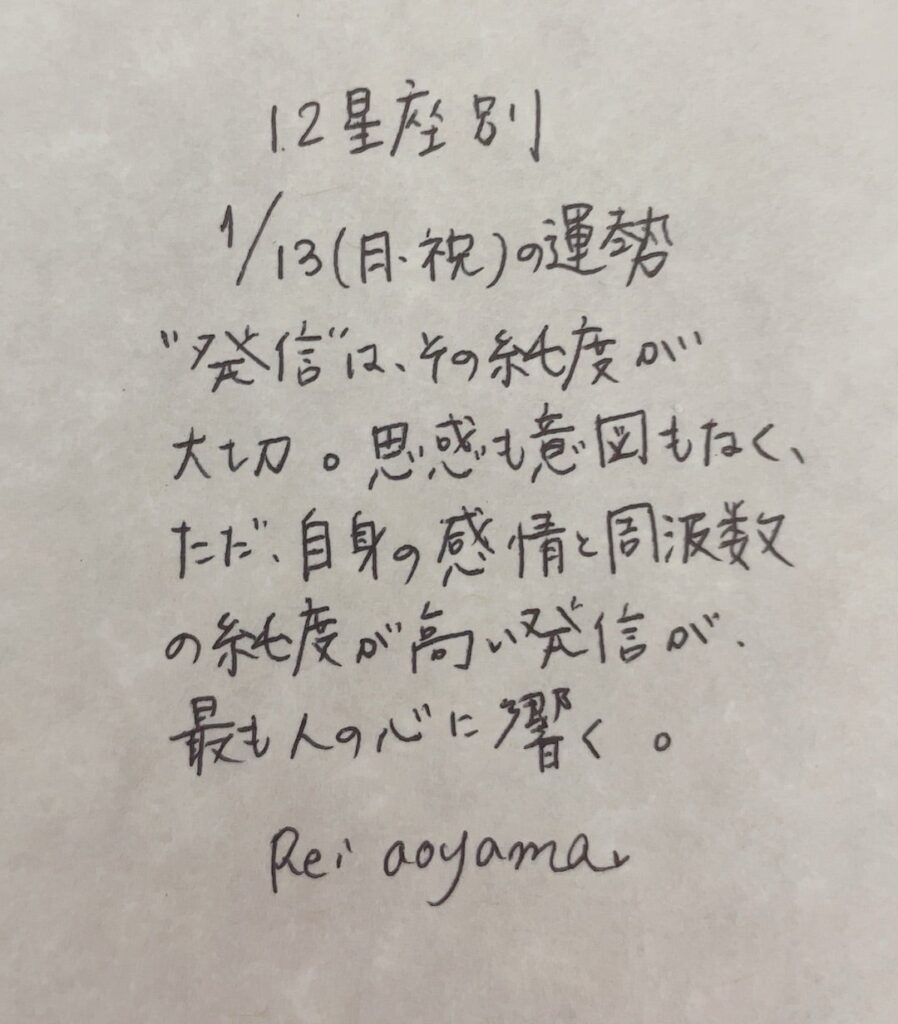 12星座別
1/13(月・祝)の運勢
"発信"は、その純度が
大切。思惑も意図もなく、
ただ、自身の感情と周波数
の純度が高い発信が、
最も人の心に響く。
Rei aoyama